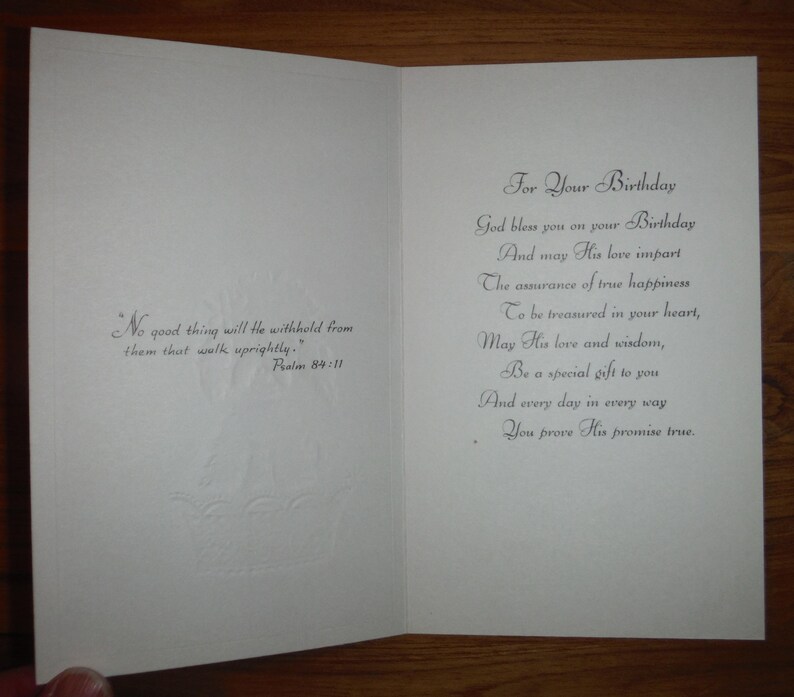 "No good thing will He withhold from
them that walk uprightly."
Psalm 84:11
For Your Birthday
God bless you on your Birthday
And may His love impart
The assurance of true happiness
To be treasured in your heart,
May His love and wisdom,
Be a special gift to you
And every day in every way
You prove His promise true.